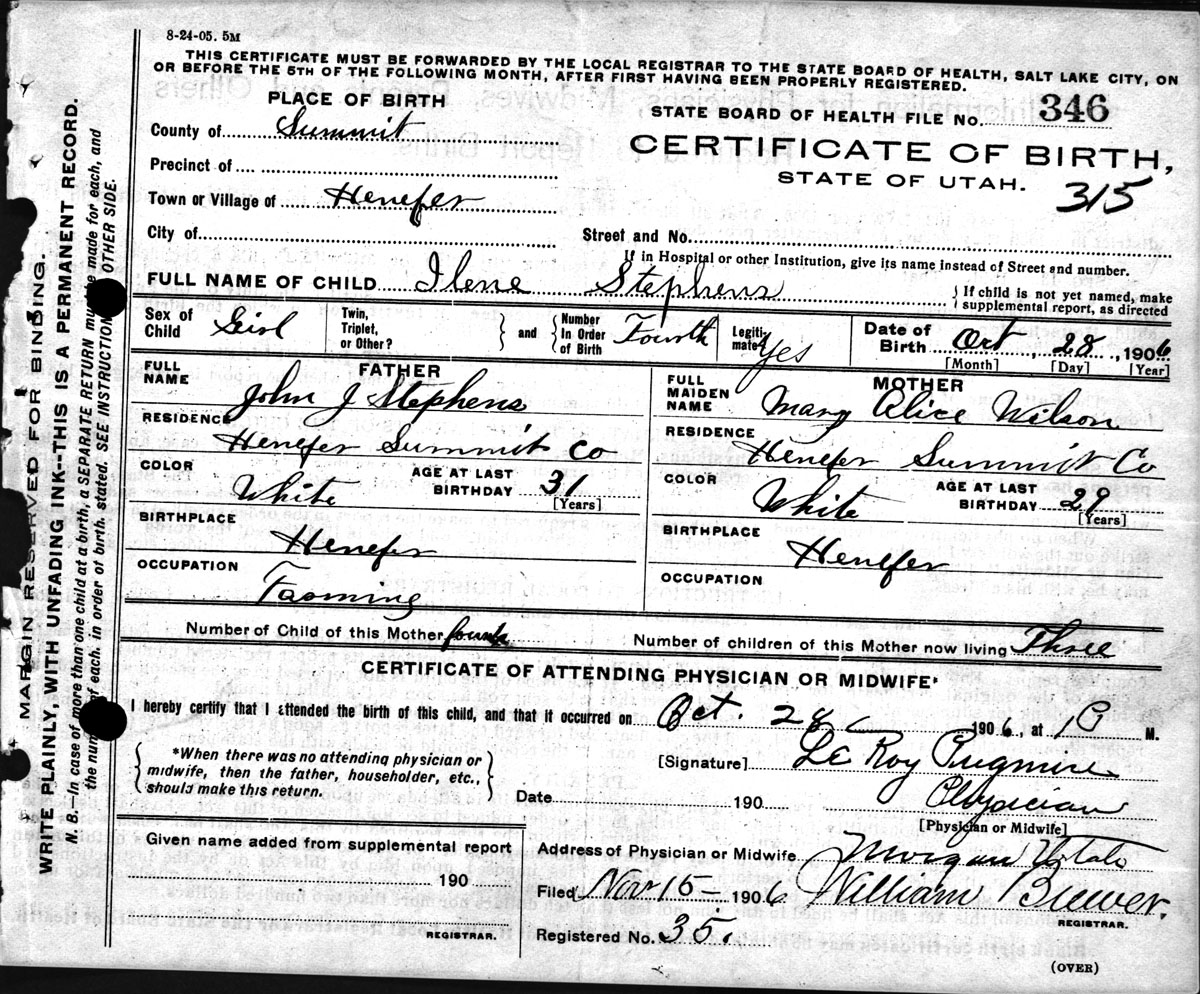 8-24-05. 5M
THIS CERTIFICATE MUST BE FORWARDED BY THE LOCAL REGISTRAR TO THE STATE BOARD OF HEALTH, SALT LAKE CITY, ON
OR BEFORE THE 5TH OF THE FOLLOWING MONTH, AFTER FIRST HAVING BEEN PROPERLY REGISTERED.
PLACE OF BIRTH
STATE BOARD OF HEALTH FILE No. 346
County of Summit
CERTIFICATE OF BIRTH,
STATE OF UTAH.
315
Precinct of
Town or Village of Henefer
City of
Street and No.
If in Hospital or other Institution, give its name instead of Street and number.
FULL NAME OF CHILD Ilene Stephens
{ If child is not yet named, make
supplemental report, as directed
Sex of Child Girl
Twin, Triplet, or Other?
} and { Number In Order of Birth Fourth
Legiti-mate? Yes
Date of Birth Oct, 28, 1906
[Month] [Day] [Year]
FATHER
FULL NAME John J Stephens
RESIDENCE
Henefer Summit Co
COLOR White
AGE AT LAST BIRTHDAY 31
[Years]
BIRTHPLACE
Henefer
OCCUPATION
Farming
MOTHER
FULL MAIDEN NAME Mary Alice Wilson
RESIDENCE
Henefer Summit Co
COLOR White
AGE AT LAST BIRTHDAY 29
[Years]
BIRTHPLACE
Henefer
OCCUPATION
Number of Child of this Mother fourth
Number of children of this Mother now living Three
CERTIFICATE OF ATTENDING PHYSICIAN OR MIDWIFE*
I hereby certify that I attended the birth of this child, and that it occurred on Oct. 28 1906, at 1 P M.
{ *When there was no attending physician or
midwife, then the father, householder, etc.,
should make this return. }
[Signature] Le Roy Pugmire
Date 190
Physician
[Physician or Midwife]
Given name added from supplemental report
190
REGISTRAR.
Address of Physician or Midwife Morgan Utah
Filed Nov 15 1906 William Brewer.
REGISTRAR.
Registered No. 35.
(OVER)
MARGIN RESERVED FOR BINDING.
WRITE PLAINLY, WITH UNFADING INK--THIS IS A PERMANENT RECORD.
N. B.—In case of more than one child at a birth, a SEPARATE RETURN must be made for each, and
the number of each, in order of birth, stated. SEE INSTRUCTIONS OTHER SIDE.